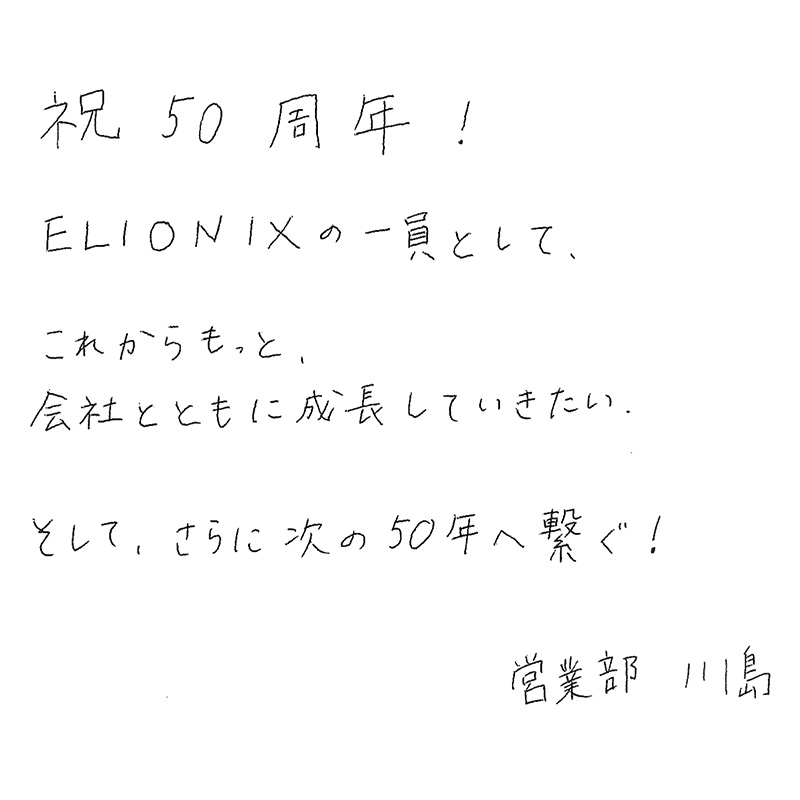 祝 50 周年！
ELIONIXの一員として、
これからもっと、
会社とともに成長していきたい．
そして、さらに次の50年へ繋ぐ！
営業部 川島